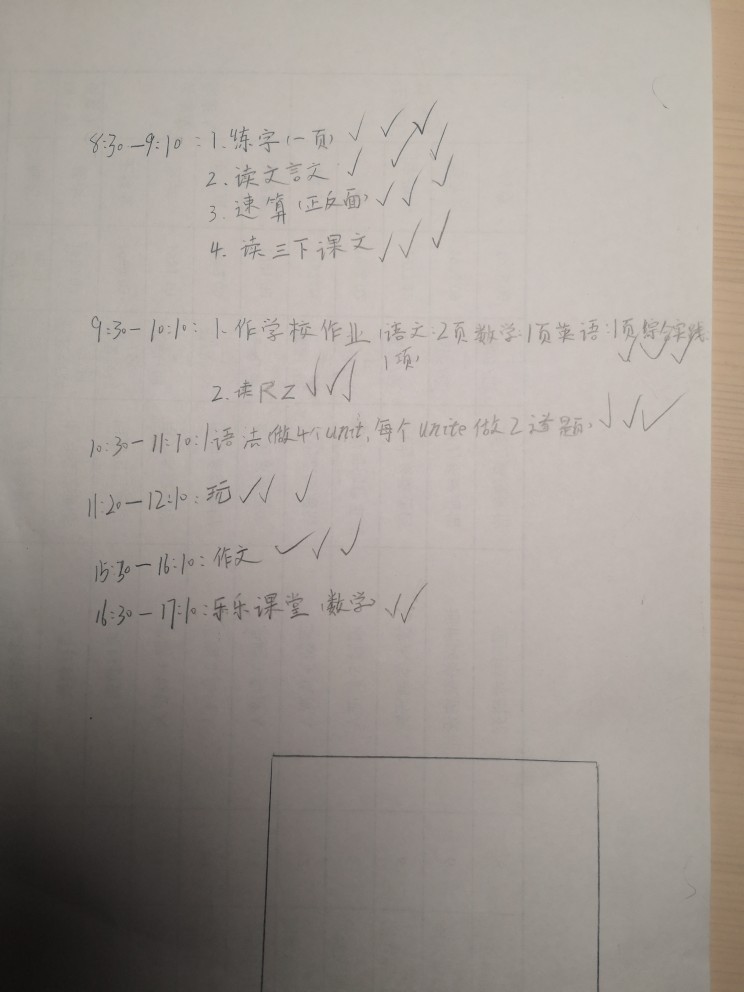 8:30—9:10：1.练字(一页) ✓ ✓ ✓
2.读文言文 ✓ ✓ ✓
3.速算(正反面) ✓ ✓ ✓
4.读三下课文 ✓ ✓ ✓
9:30—10:10：1.作学校作业(语文:2页数学:1页英语:1页综合实践
1项) ✓ ✓ ✓
2.读RZ ✓ ✓ ✓
10:30—11:10：1.语法(做4个unit,每个unite做2道题) ✓ ✓ ✓
11:20—12:10：玩 ✓ ✓ ✓
15:30—16:10：作文 ✓ ✓ ✓
16:30—17:10：乐乐课堂(数学) ✓ ✓